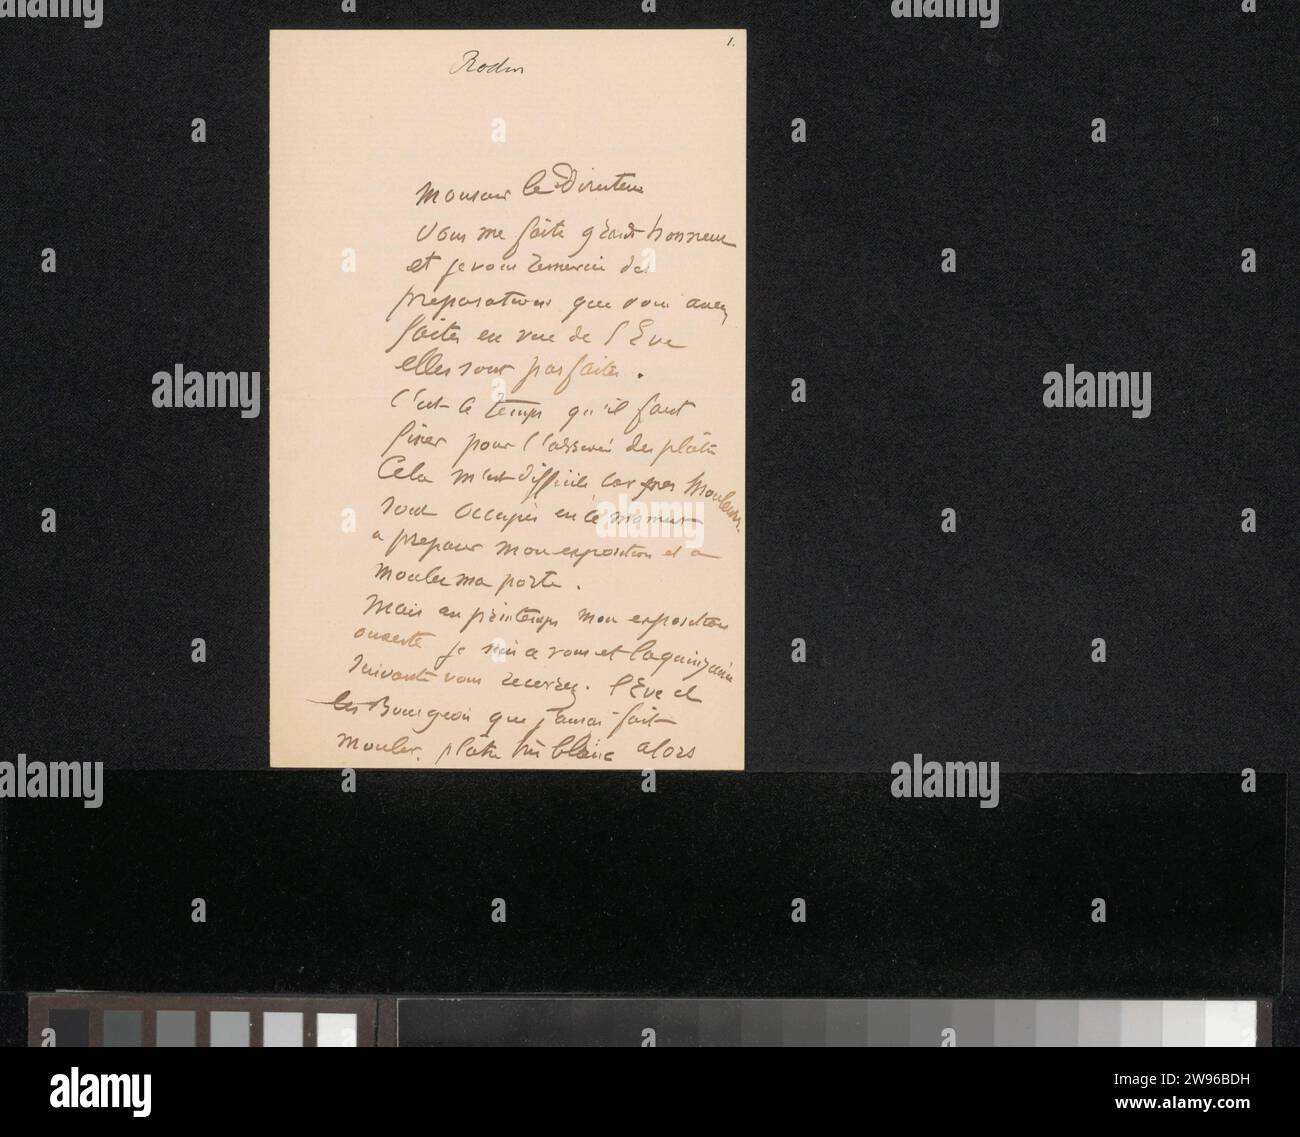 1.
Rodin
Monsieur le Directeur
Vous me faite grand honneur
et je vous remercie des
preparations que vous avez
faites en vue de l'Eve
elles sont parfaites.
C'est le temps qu'il faut
fixer pour l' des plâtre
Cela m'est difficile car mes Mouleurs.
sont occupés en ce moment
a preparer mon exposition et a
mouler ma porte.
Mais au printemps mon exposition
ouverte je suis a vous et la quinzaine
suivante vous recevrez. l'Eve et
les Bourgeois que j'aurai fait
mouler. plâtre très blanc alors
a alamy
alamy
Image ID: 2W96BDH
www.alamy.com